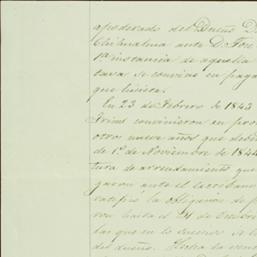 apoderado del Dueño D
Chihuahua ante D. José
1ª instancia de aquella
tava se convino en paga
que hiciera.
En 23 de Febrero de 1843
convinieron en pro
otros nueve años que debe
de 1º de Noviembre de 1844
tura de arrendamiento que
garon ante el Escribano
ratificó la obligacion de p
ron hasta el 21 de
las que en lo sucesivo se
del dueño. Hasta la